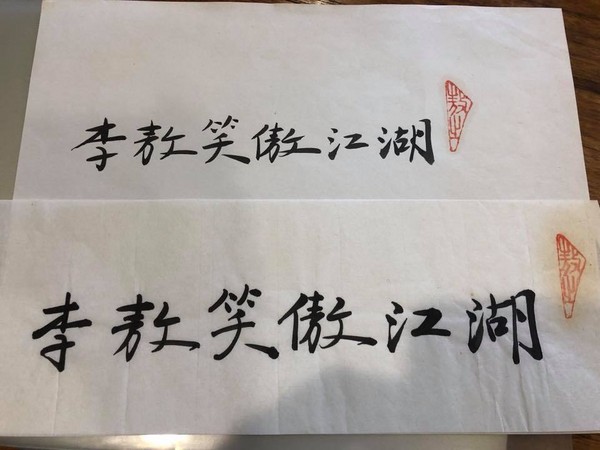 李敖笑傲江湖
李敖笑傲江湖